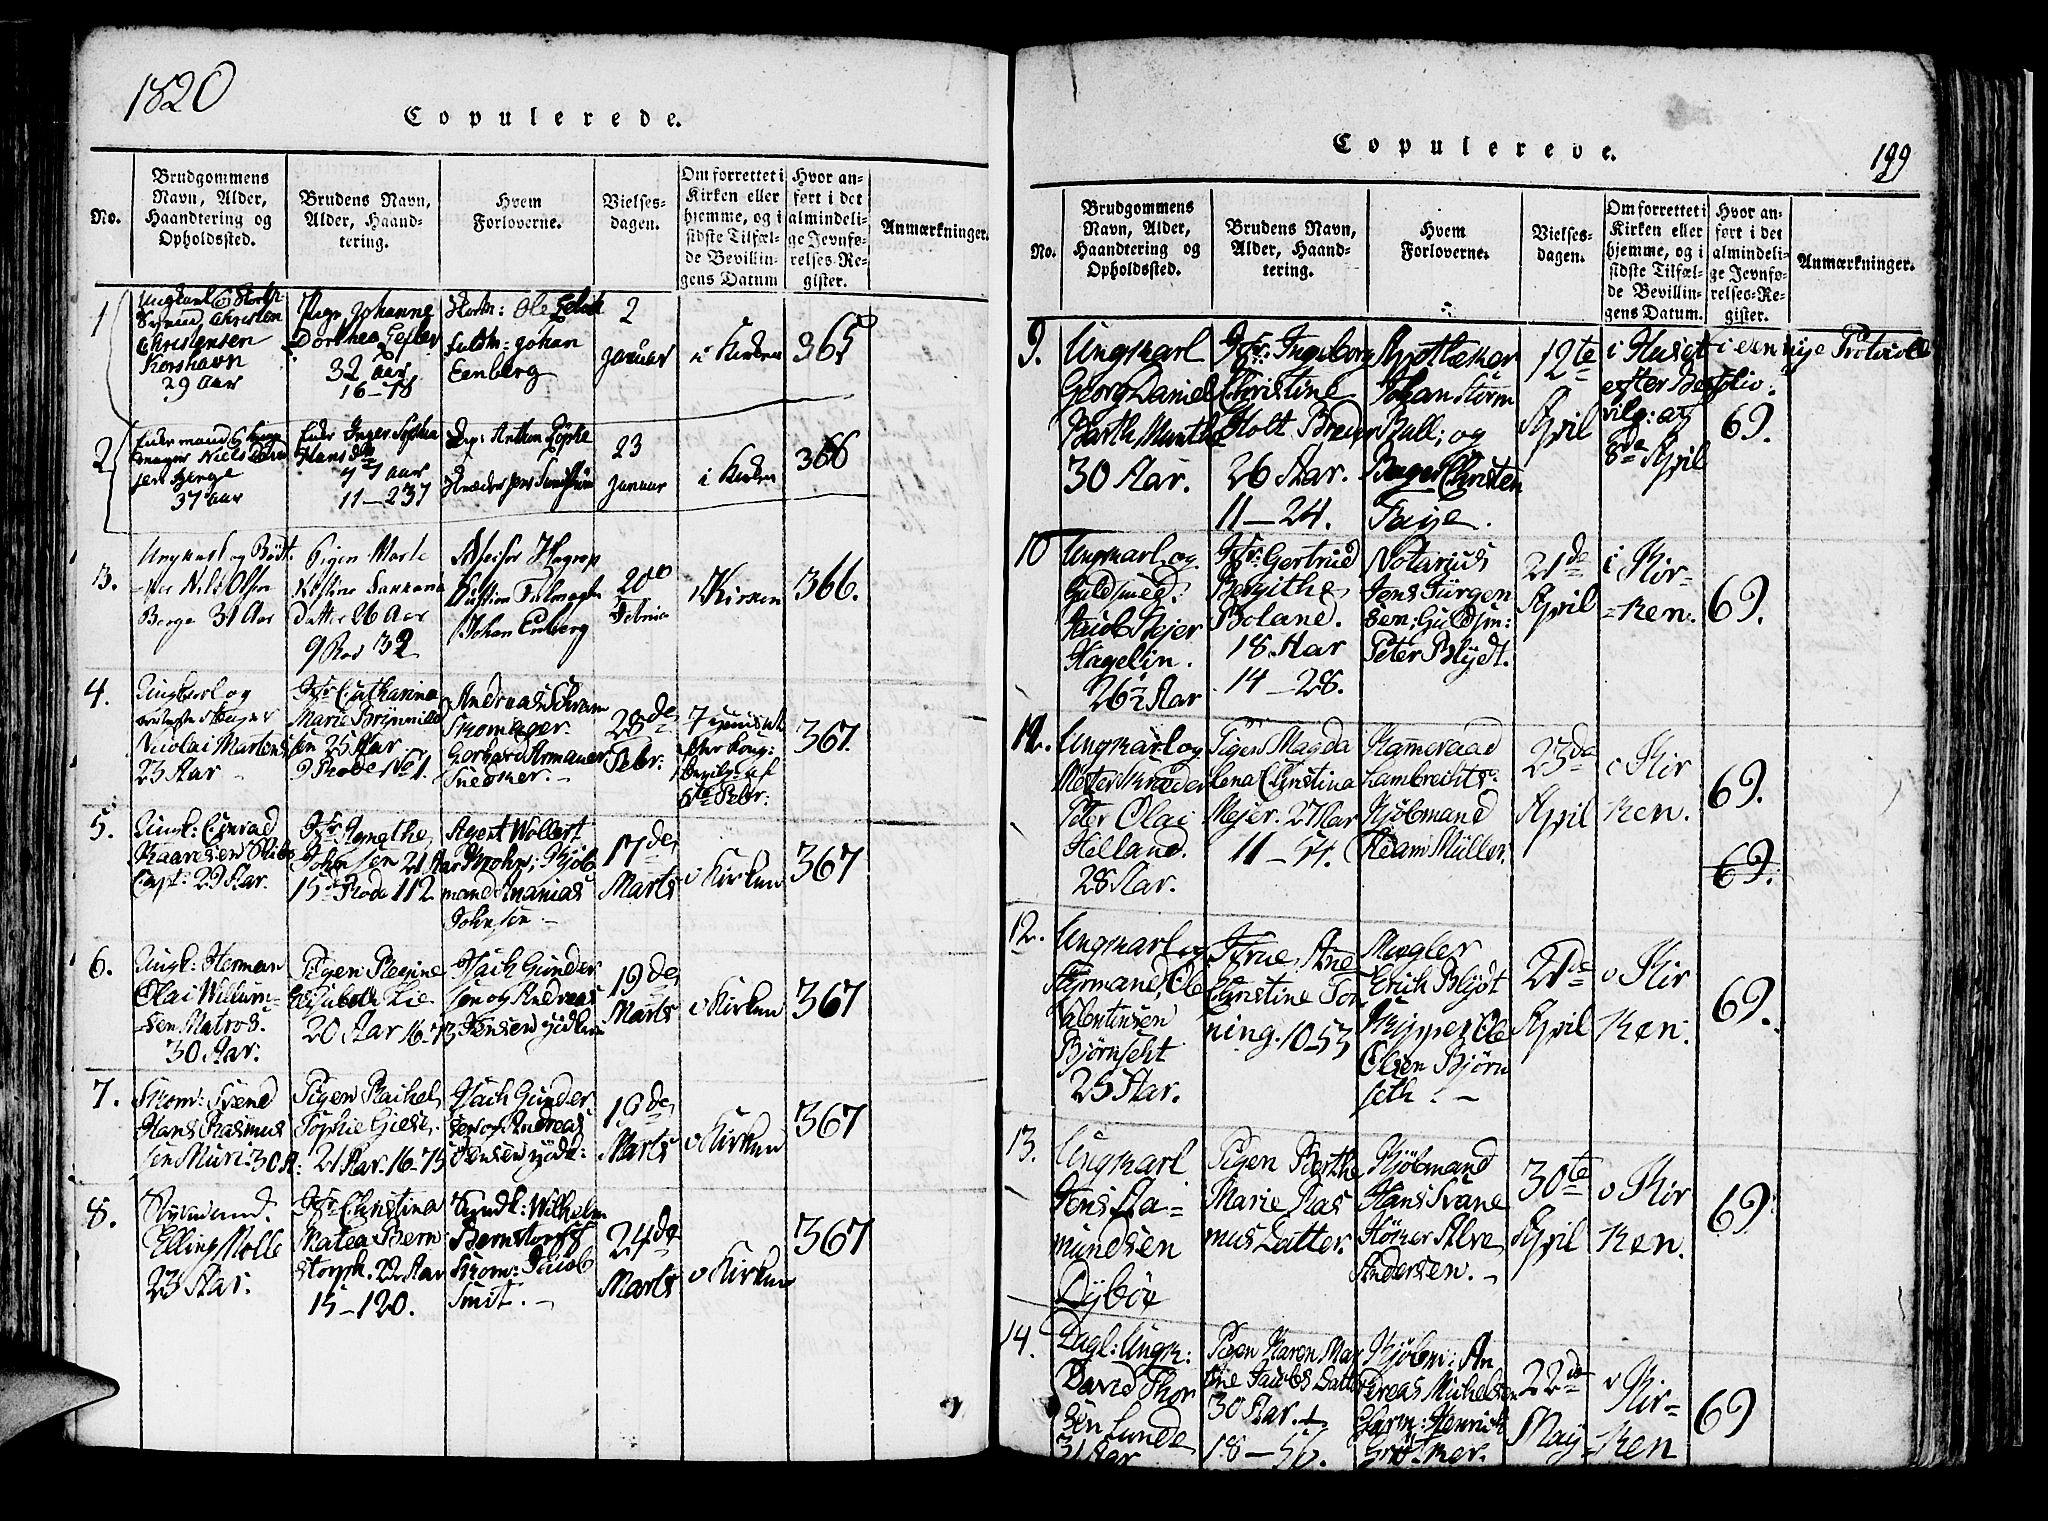 1820
Copulerede.
No.
Brudgommens
Navn, Alder,
Haandtering og
Opholdssted.
Brudens Navn,
Alder, Haand-
tering.
Hvem
Forloverne.
Vielses-
dagen.
Om forrettet i
Kirken eller
hjemme, og i
sidste Tilfæl-
de Bevillin-
gens Datum
Hvor an-
ført i det
almindeli-
ge Jevnfø-
relses-Re-
gister.
Anmærkninger.
1
Christen
Christensen
Korshavn
29 Aar
Johanne
Dorthea
32 Aar
16-78
Johan
Eenberg
2
Januar
i Kirken
365
2
Niels
Berge
37 Aar
Enke Inger Sophia
Hans
Aar
11-237
Anthon
23
Januar
i Kirken
366
3.
Ungkarl og
Nils Olsen
Berge 31 Aar
Pigen Marte
Datter 26 Aar
9 Rod 32
Johan Enberg
20
Februar
i Kirken
366.
4.
Ungkarl og
Nicolai Martens
23 Aar
Jfr Catharina
Marie Brynnild
sen 25 Aar
9 Rode No 1.
Andreas Schram
Skomager.
Gerhard Armauer
Snedker.
28de
Febr.
367.
5.
Ungk: Conrad
Kaaresen
Capt: 29 Aar.
Jfr Agnethe
Johnsen 21 Aar
15de Rode 112
Agent Wollert
Krohn, Kjøb
mand Ananias
Johnsen
17de
Marts
i Kirken
367
6.
Ungk: Herman
Olai Willum-
sen Matros.
30 Aar:
Pigen Regine
Elisabeth Lie
20 Aar 16-73
Isach Gunder
sen og Andreas
Jensen
19de
Marts
i Kirken
367
7.
Skom: Svend
Hans Rasmus
sen Muri: 30 A:
Pigen Rachel
Sophie Giese,
21 Aar. 16-75
Isach Gunder
sen og Andreas
Jensen
19de
Marts
i Kirken
367
8.
Styrmand.
Elling Molle
23 Aar.
Jfr Christina
Matea Bern
storph. 22 Aar
15-120.
Wilhelm
Bernstorph
Skom: Jacob
Smit.
24de
Marts
i Kirken
367
Copulerede.
199
No.
Brudgommens
Navn, Alder,
Haandtering og
Opholdssted.
Brudens Navn,
Alder, Haand-
tering.
Hvem
Forloverne.
Vielses-
dagen.
Om forrettet i
Kirken eller
hjemme, og i
sidste Tilfæl-
de Bevillin-
gens Datum.
Hvor an-
ført i det
almindeli-
ge Jevnfø-
relses-Re-
gister.
Anmærkninger.
9.
Ungkarl
Georg Daniel
Barth Munthe
30 Aar.
Jfr: Ingeborg
Christine
Holt Breder
26 Aar.
11-24.
Apotheker
Johan Storm
Bull; og
Bager Christen
Faye.
12te
April
i Huset
efter Be
vilg: af
8de April
i den nye Protocoll
folio
69.
10
Ungkarl og
Guldsmed.
Jacob Mejer
Hagelin.
26½ Aar
Jfr: Gertrud
Bergithe
Boland.
18 Aar
14-28.
Notarius
Jens Jürgen
sen; Guldsm:
Peter Blydt.
21de
April
i Kir-
ken.
69.
11.
Ungkarl og
Mester Skræder
Peter Olai
Helland.
28 Aar.
Pigen Magda
lena Christina
Mejer. 27 Aar
11-54.
Kammeraad
Lambrechts.
Kjøbmand
Adam Müller.
23de
April
i Kir
ken.
69.
69.
12.
Ungkarl og
Styrmand, Ole
Valentinsen
Bjørnseht
25 Aar.
Jfrue, Ane
Christine Tor
ning. 10-53
Mægler
Erich Blydt
Skipper Ole
Olsen Bjørn
seth.
21de
April
i Kir
ken.
69.
13.
Ungkarl
Jens Aa-
mundsen
Dybøe
Pigen Berthe
Marie Ras
mus Datter.
Kjøbmand
Hans Svane
Høker Alve
Andersen.
30te
April
i Kir
ken.
69.
14.
Dagl: Ungk:
David Thor
sen Lunde
31 Aar
Pigen Karen Mar
the Jacobs Datter
30 Aar.
18-56.
Kjøbm: An
dreas Michelsen
Henrich
Grøtmer.
22de
May
i Kir-
ken
69